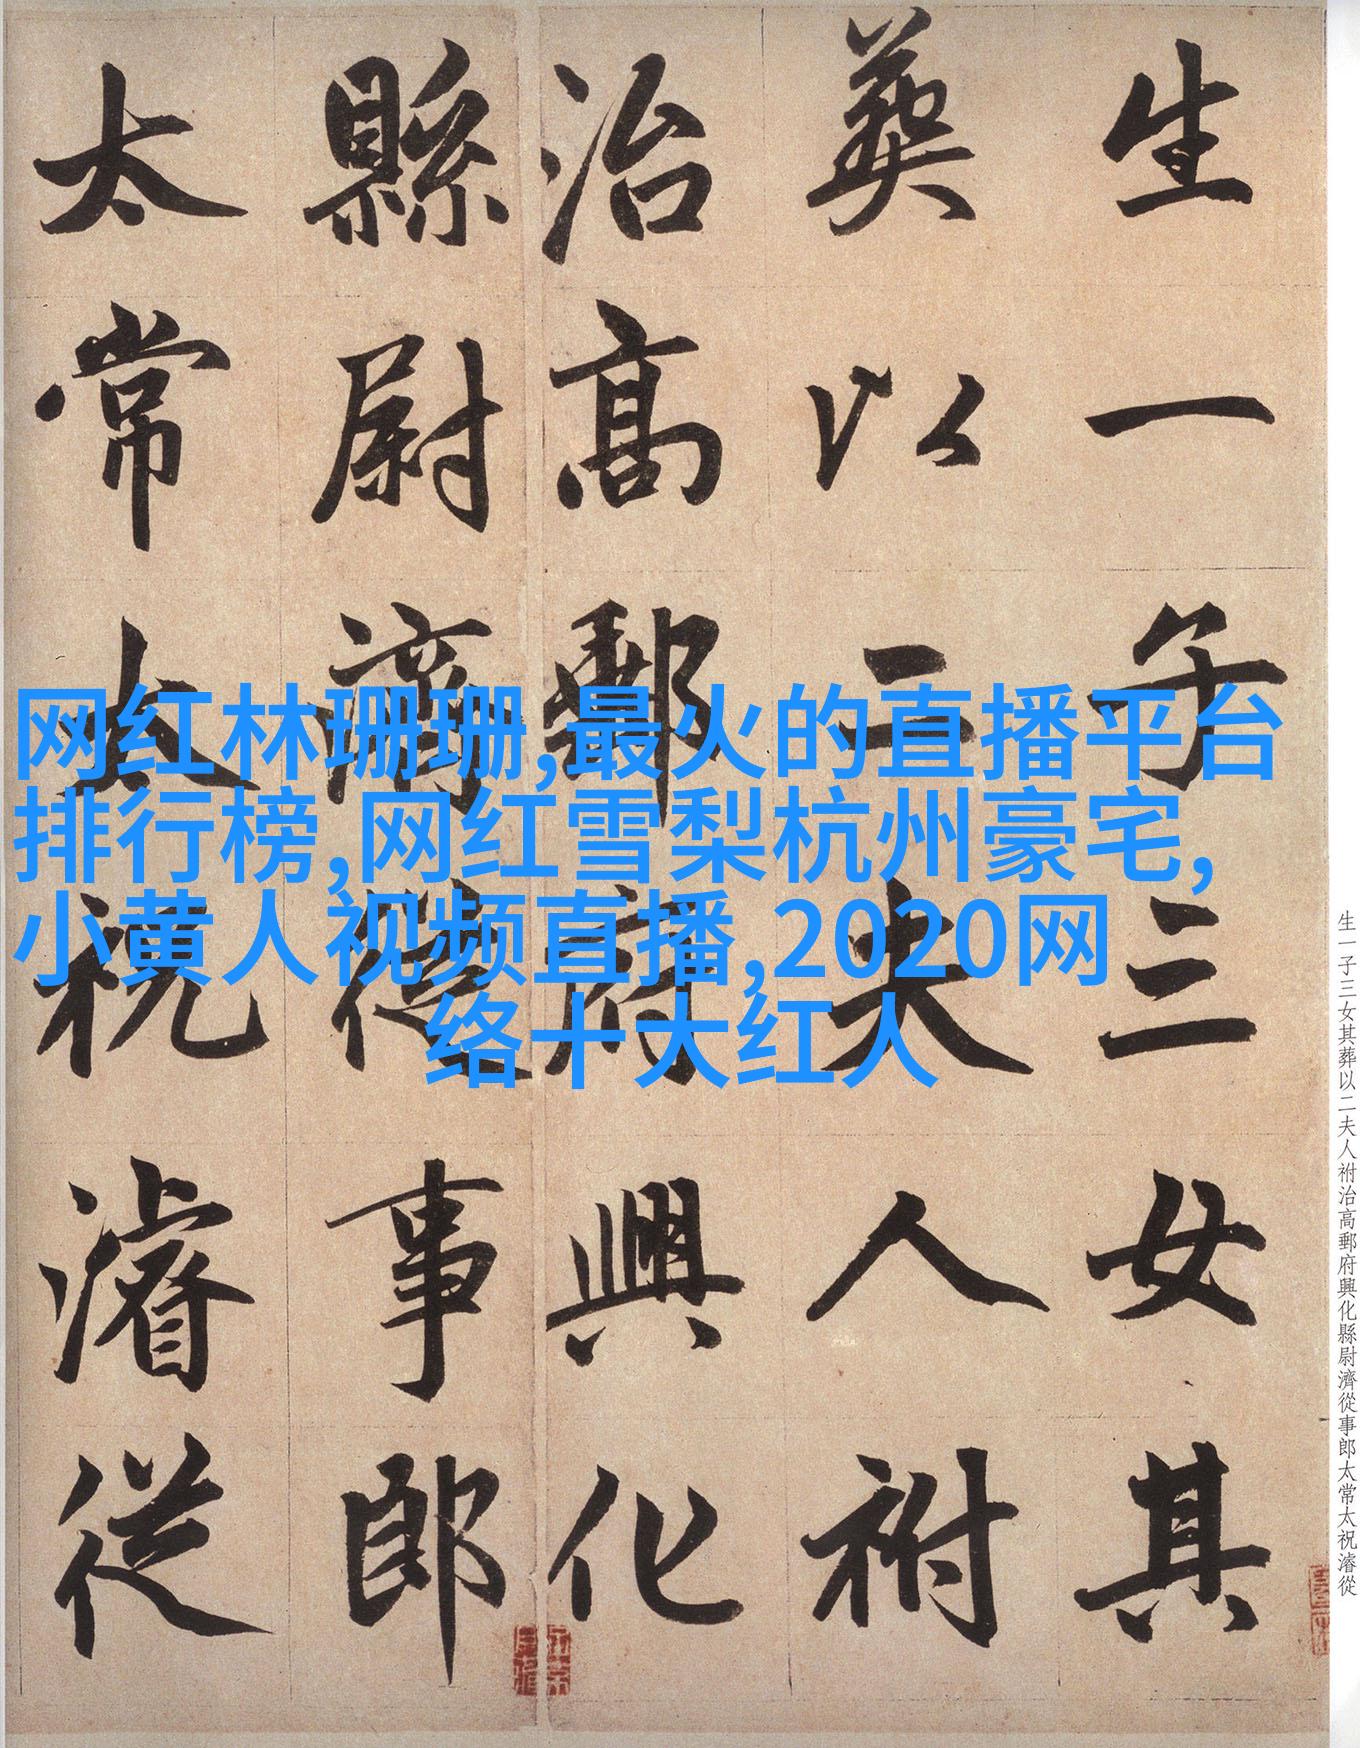 网红林珊珊,最火的直播平台
排行榜,网红雪梨杭州豪宅,
小黄人视频直播,2020网
络十大红人
生一子三女其
葬以二夫人祔
治高郵府興化
縣尉濟從事郎
太常太祝濬從
生一子三女其葬以二夫人祔治高郵府興化縣尉濟從事郎太常太祝濬從